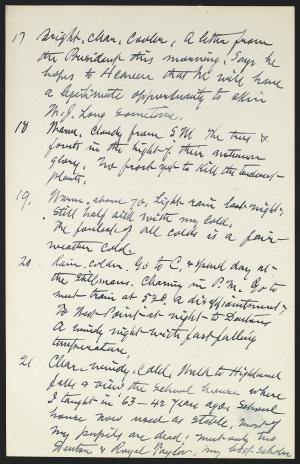 17 Bright, clear, cooler, A letter from
the President this morning, Says he
hopes to Heaven that he will have
a legitimate opportunity to skin
W.J. Long sometime.
18 Warm, cloudy from S.W. The trees &
forests in the height of their autumn
glory. No frost yet to kill the tenderest
plants.
19. Warm, above 70. Light rain last night,
Still half sick with my cold.
The foulest of all colds is a fair-
weather cold.
20. Rain, colder. Go to C, & spend day at
the . Clearing in P.M. Go to
meet train at 5 , a disappointment,
To West Point at night to
A windy night with fast falling
temperature,
21 Clear, windy, cold, Walk to Highland
falls & view the school house where
I taught in '63 – 42 years ago. School
house now used as stable, most of
my pupils are dead; met only two
Denton & Royal Taylor, my best scholar